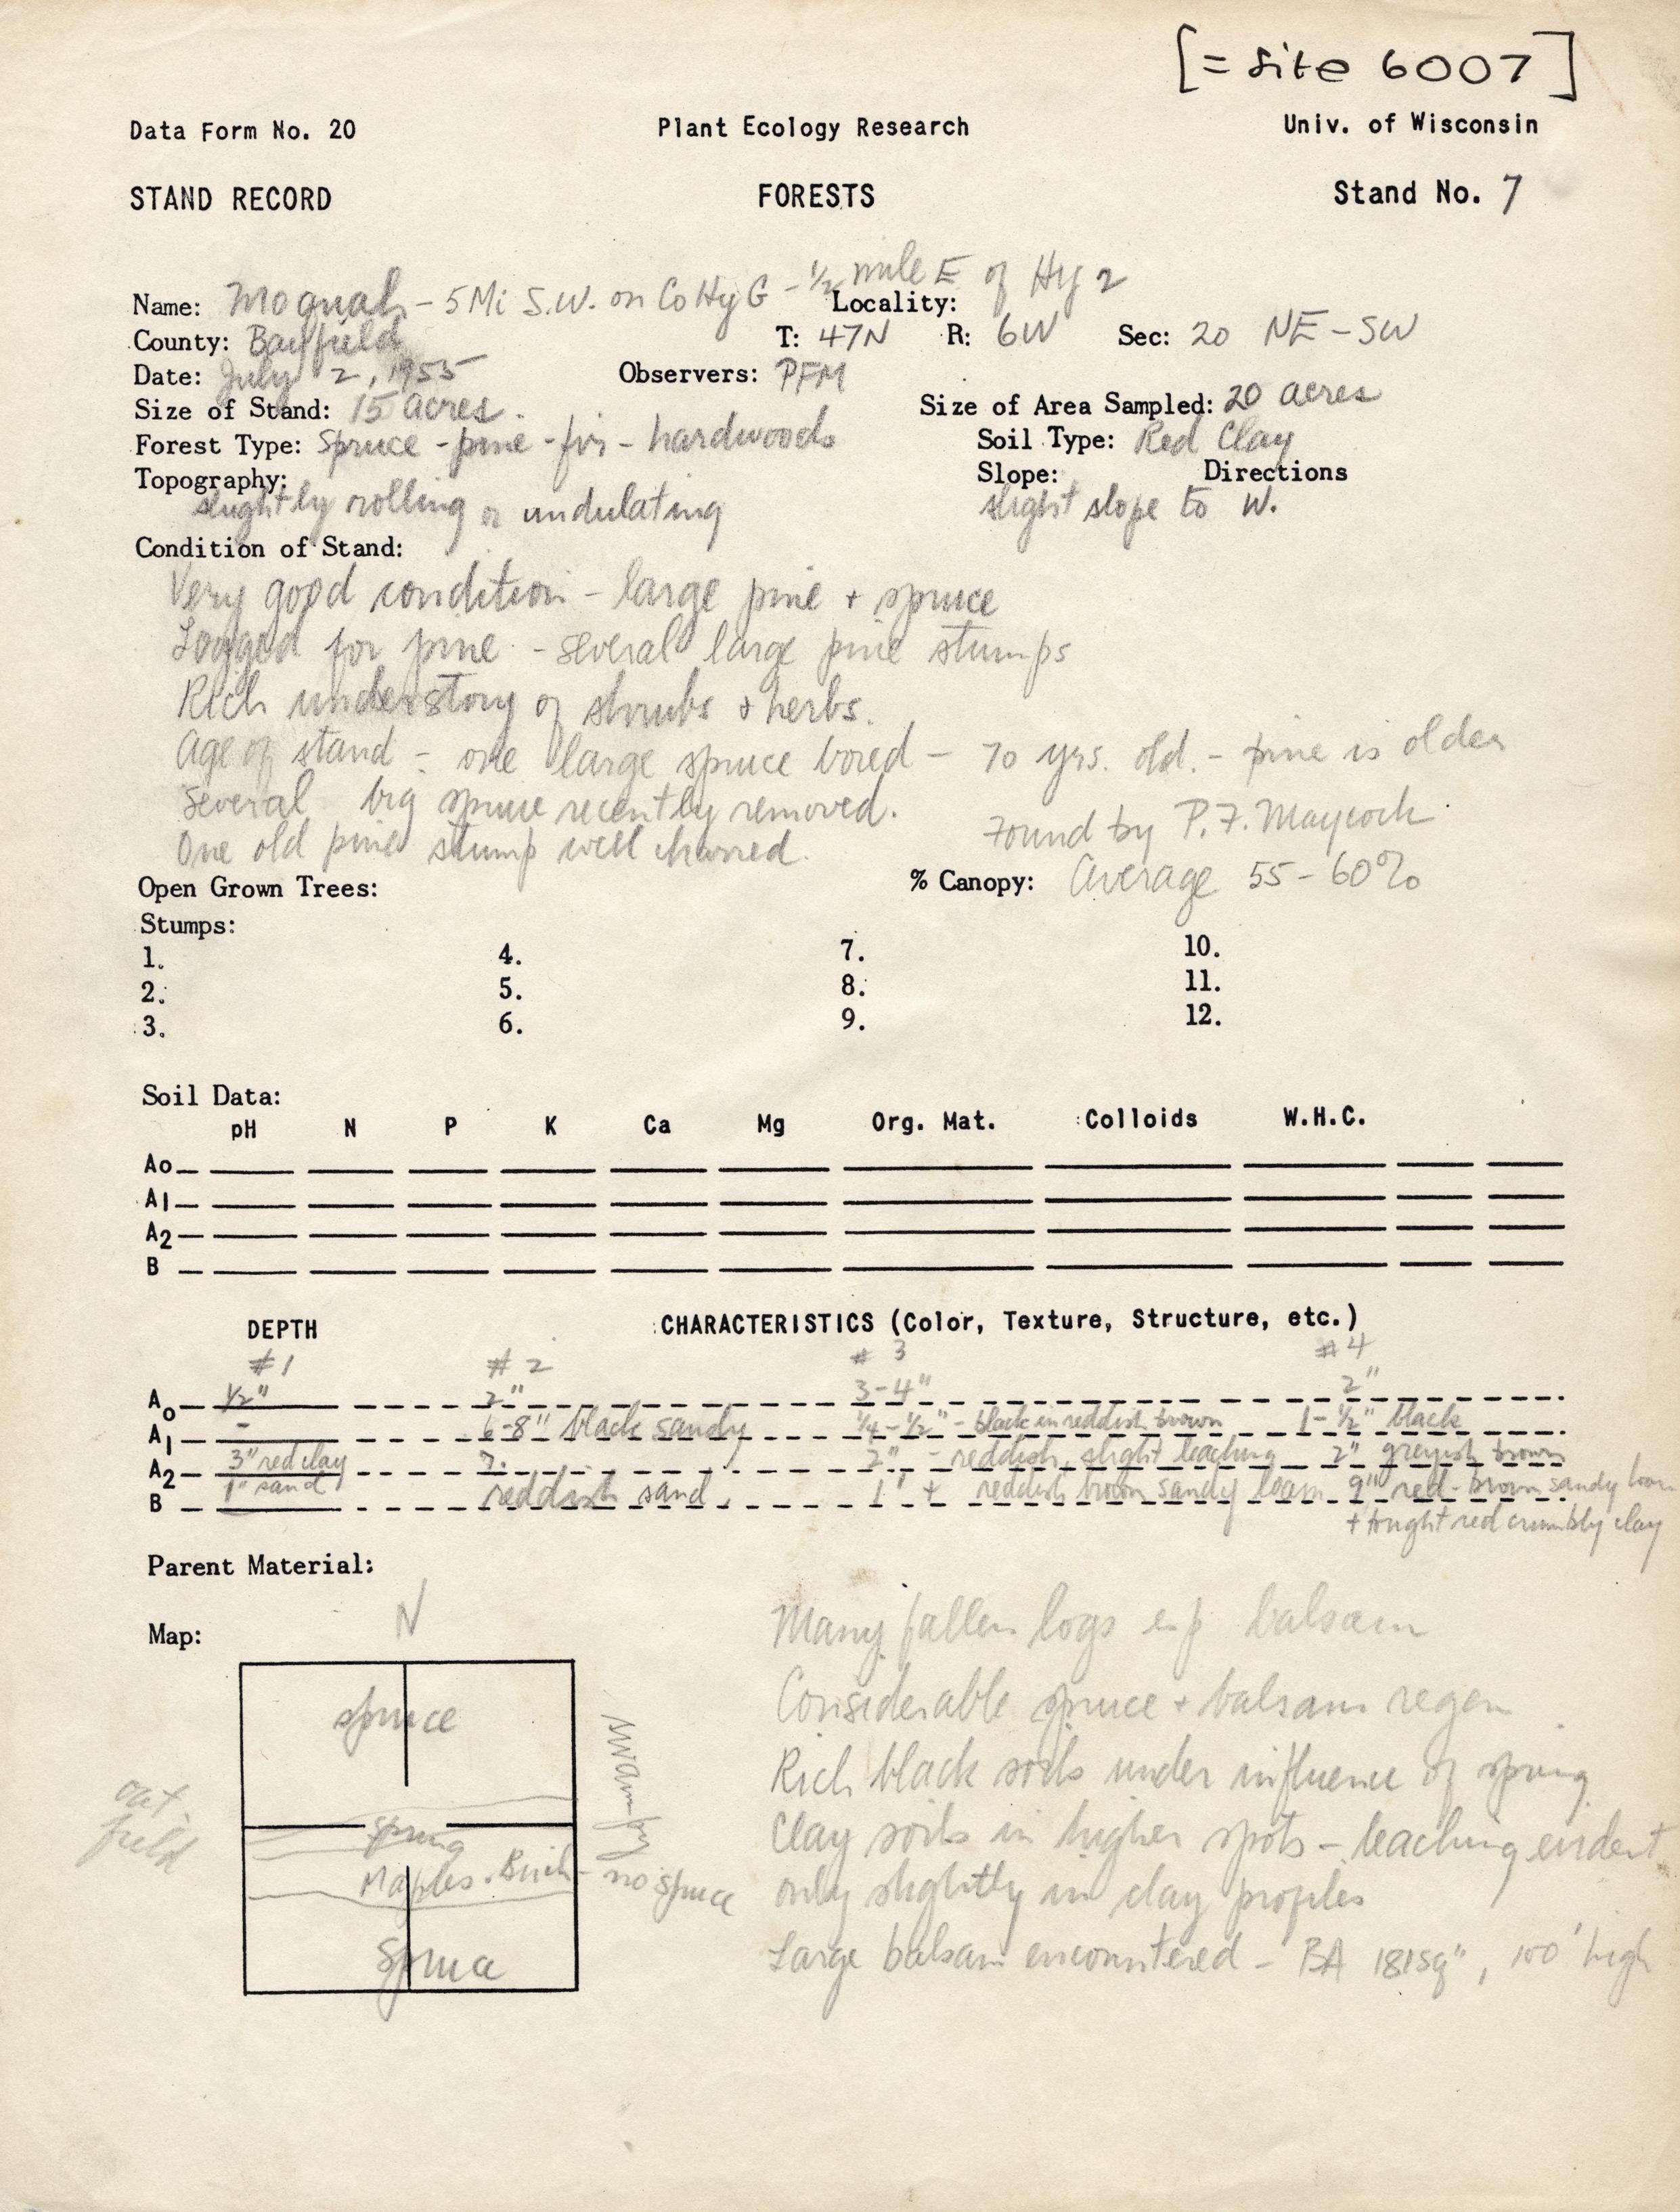 [= site 6007]
Data Form No. 20 Plant Ecology Research Univ. of Wisconsin
STAND RECORD FORESTS Stand No. 7
Name: Moquah - 5 Mi S.W. on Co Hy G - 1/2 mile E of Hy 2 Locality:
County: Bayfield T: 47N R: 6W Sec: 20 NE-SW
Date: July 2, 1955 Observers: PFM
Size of Stand: 15 acres. Size of Area Sampled: 20 acres
Forest Type: Spruce - pine - fir - hardwoods Soil Type: Red Clay
Topography: Slope: Directions
slightly rolling or undulating slight slope to W.
Condition of Stand:
Very good condition - large pine + spruce
Logged for pine - several large pine stumps
Rich understory of shrubs + herbs.
Age of stand - one large spruce bored - 70 yrs. old. - pine is older
Several big spruce recently removed.
Found by P.F. Maycock
One old pine stump well charred.
Open Grown Trees: % Canopy: Average 55-60%
Stumps:
1. 4. 7. 10.
2. 5. 8. 11.
3. 6. 9. 12.
Soil Data:
pH N P K Ca Mg Org. Mat. Colloids W.H.C.
Ao
A1
A2
B
DEPTH CHARACTERISTICS (Color, Texture, Structure, etc.)
#1 #2 #3 #4
Ao 1/2" 2" 3-4" 2"
A1 - 6-8" black sandy 1/4-1/2" - black in reddish brown 1-1/2" black
A2 3" red clay 2" - reddish, slight leaching 2" greyish brown
B 1" sand reddish sand. 1' + reddish brown sandy loam 9" red-brown sandy loam
red crumbly clay
Parent Material:
Map: N
spruce
swamp
oat field
spring
Maples. Birch - no spruce
Spruce
Many fallen logs esp balsam
Considerable spruce + balsam regen
Rich black soils under influence of spring
Clay soils in higher spots - leaching evident
only slightly in clay profiles
Large balsam encountered - BA 181 sq", 100' high